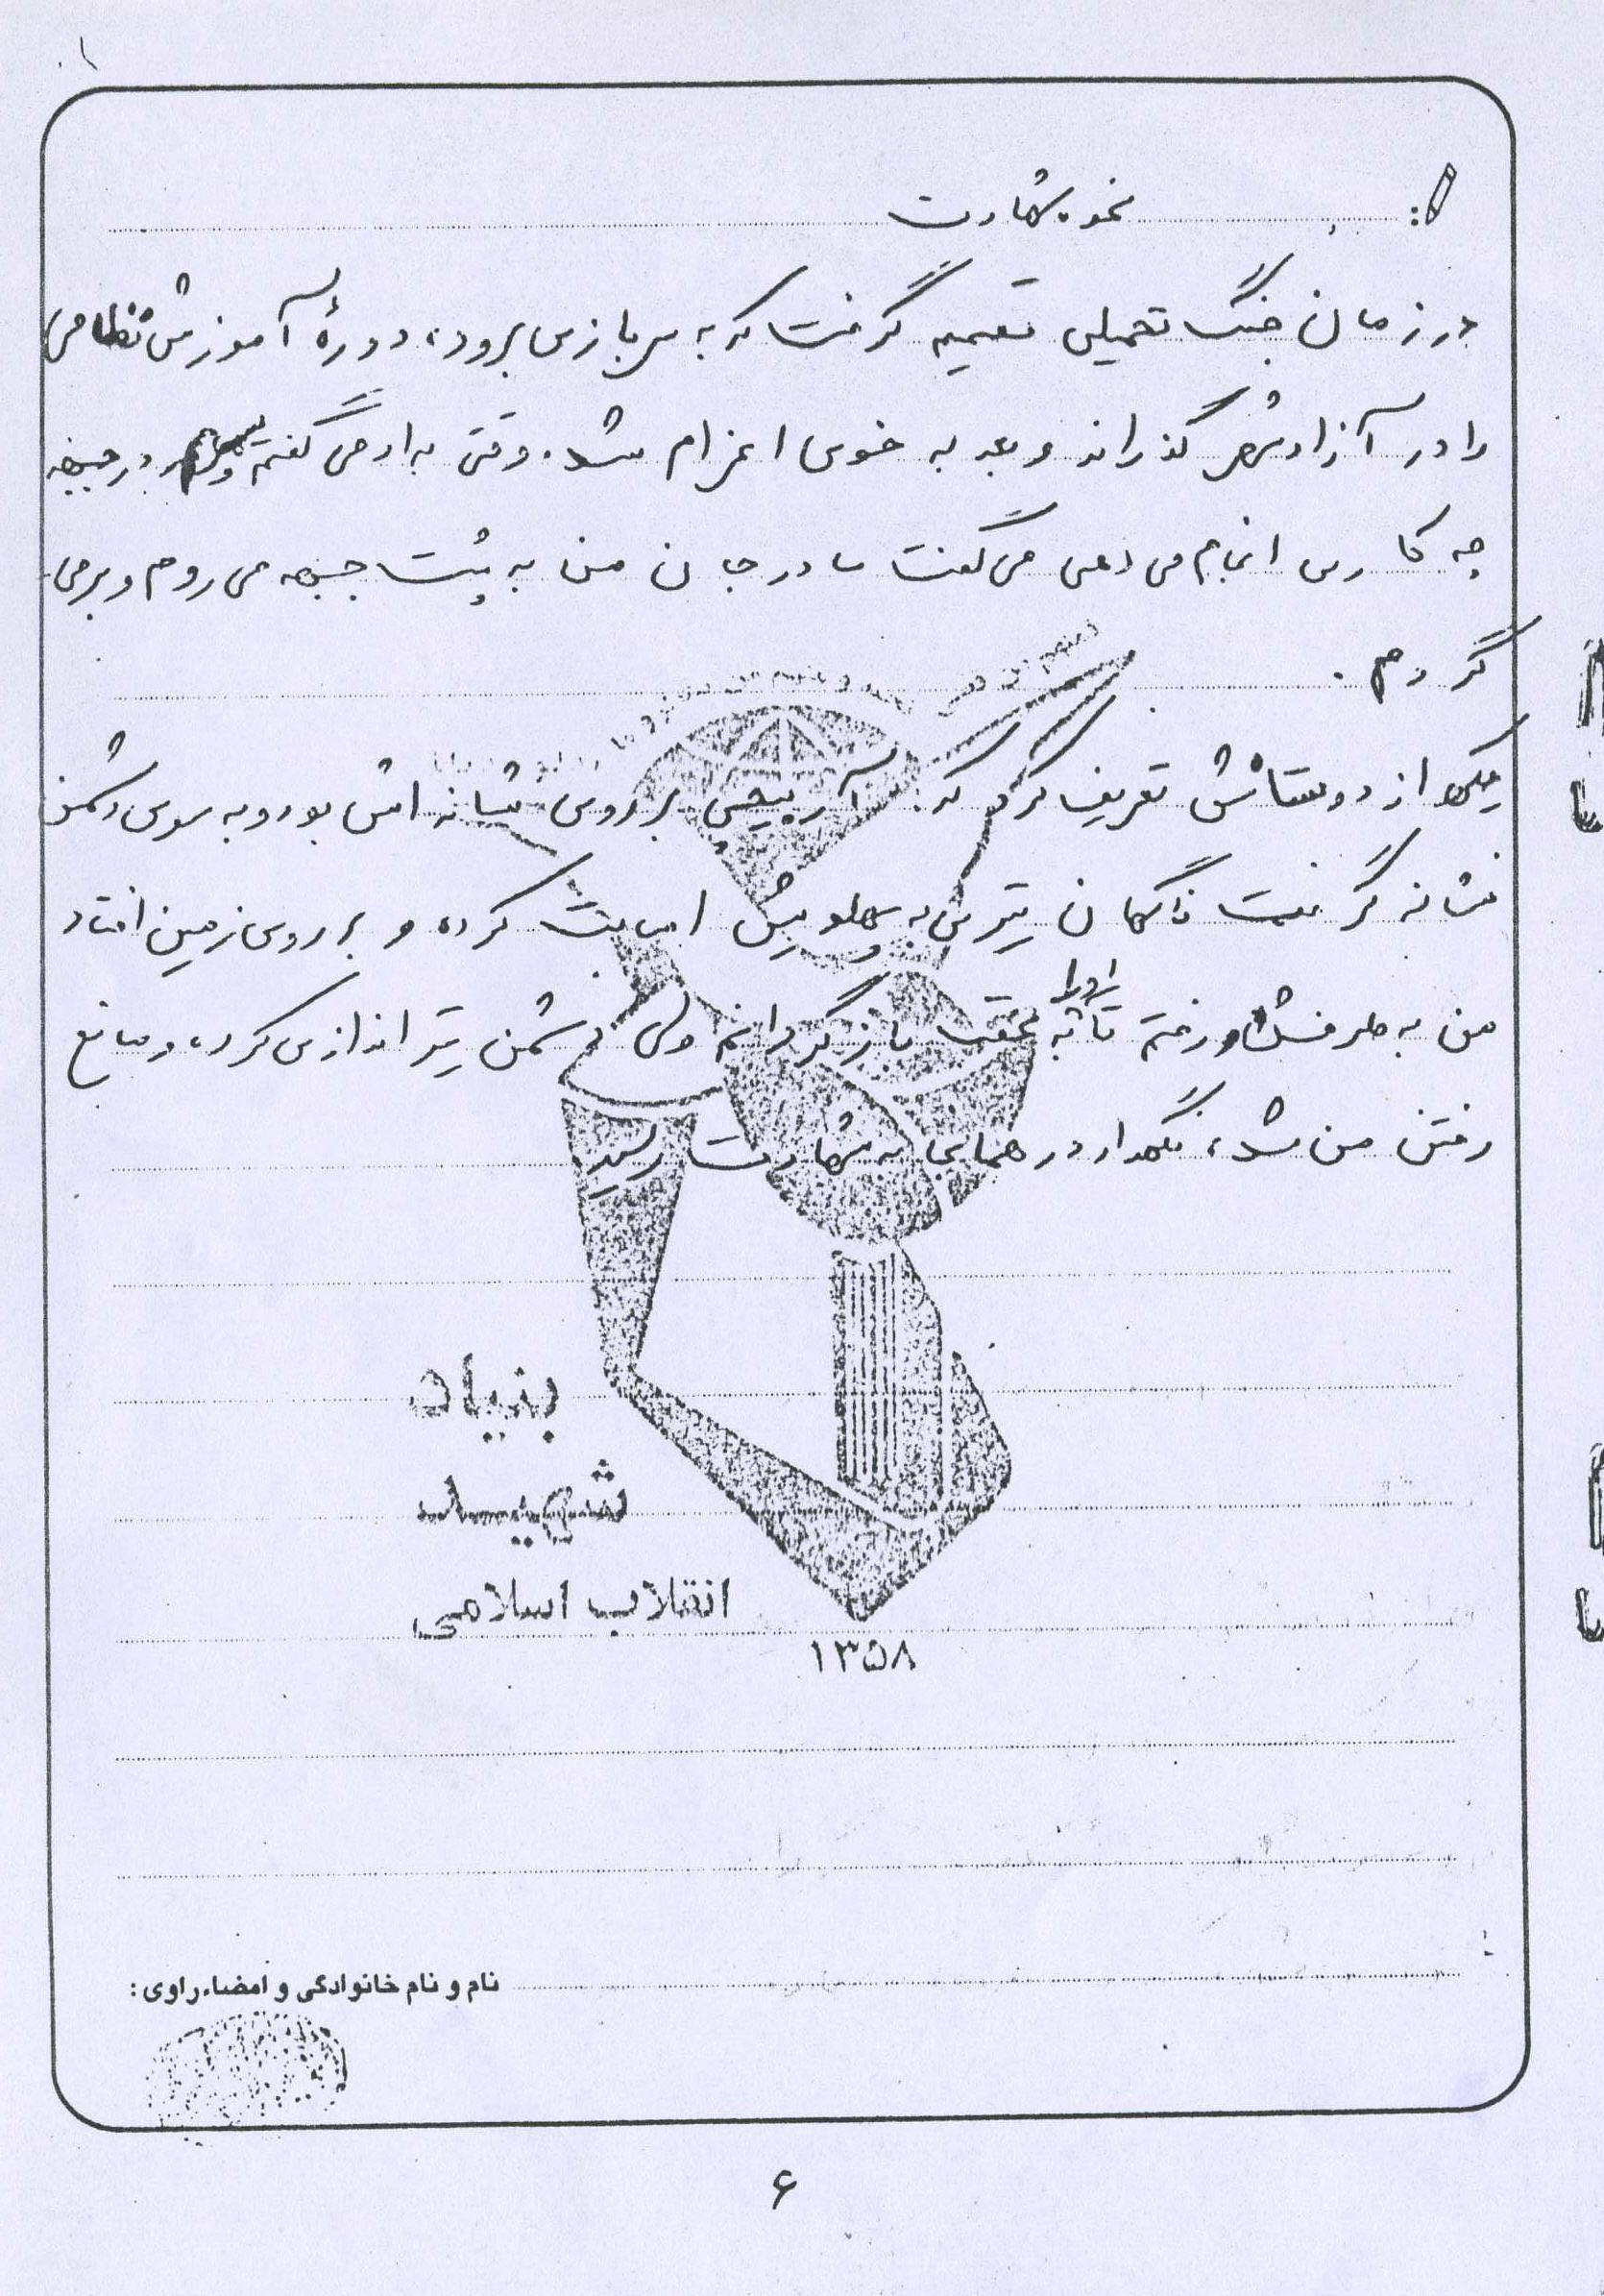 نحوه شهادت
در زمان جنگ تحمیلی تصمیم گرفت که به سربازی برود، دورهٔ آموزش نظامی
را در آزادشهر گذراند و بعد به خوی اعزام شد. وقتی به او می گفتم در جبهه
چه کاری انجام می دهی می گفت مادر جان من به پشت جبهه می روم و بر می
گردم.
یکی از دوستانش تعریف کرد که: آرپیجی بر روی شانه اش بود و به سوی دشمن
نشانه گرفت ناگهان تیری به پهلویش اصابت کرده و بر روی زمین افتاد
من به طرفش رفتم تا او را به عقب بازگردانم ولی دشمن تیراندازی کرد، و مانع
رفتن من شد، نگهدار در همانجا به شهادت رسید
بنیاد
شهید
انقلاب اسلامی
۱۳۵۸
نام و نام خانوادگی و امضاء راوی:
۶